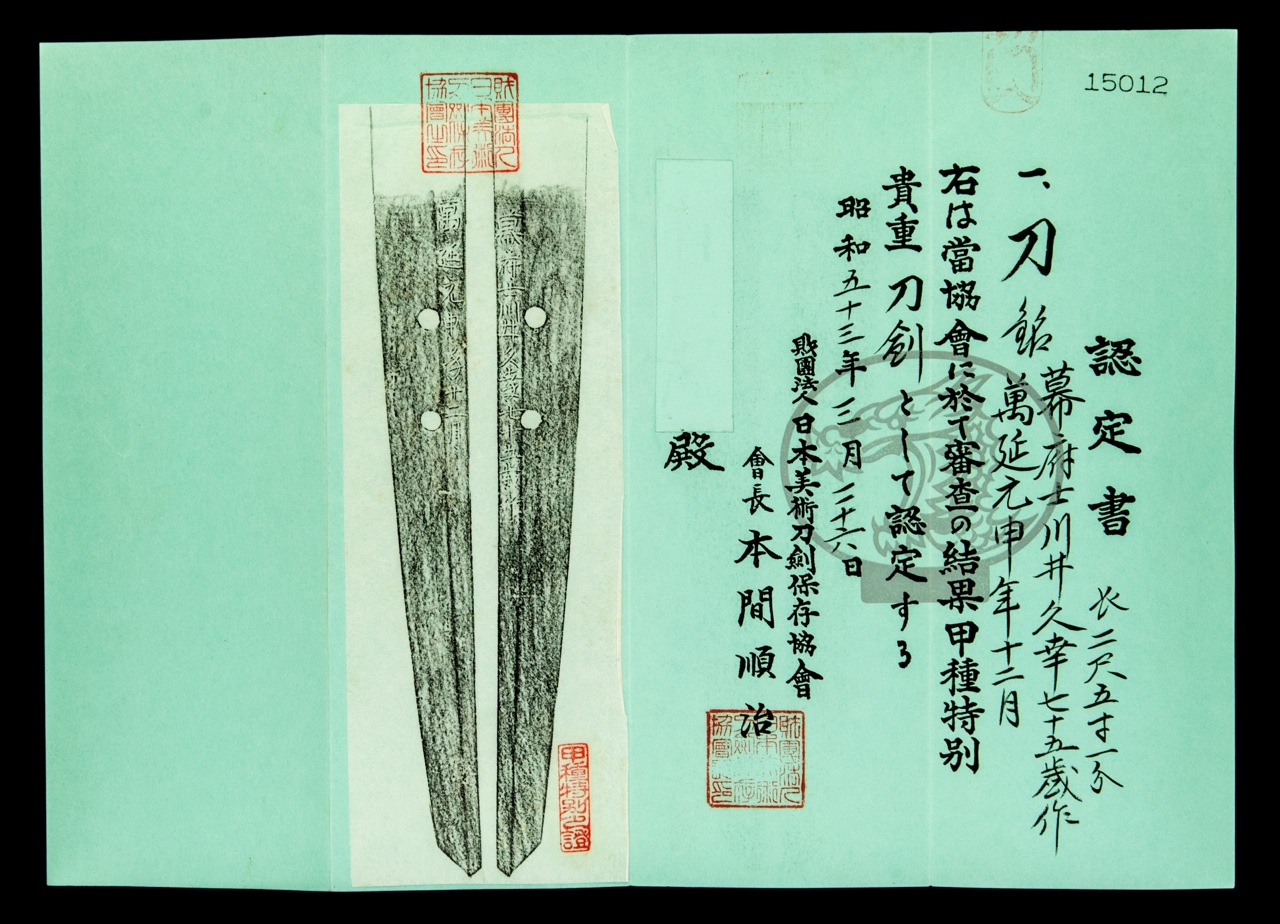 15012
認定書
長二尺五寸一分
一、刀 銘 幕府士川井久幸七十五歳作
萬延元申年十二月
右は當協會に於て審査の結果甲種特別
貴重刀剣として認定する
昭和五十三年三月二十六日
財團法人日本美術刀劍保存協會
會長 本間順治
殿
甲種特別之證